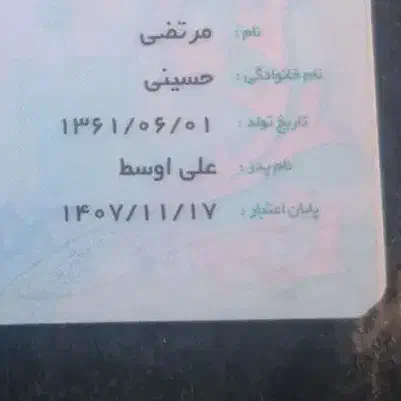 نام: مرتضی
نام خانوادگی: حسینی
تاریخ تولد: ۱۳۶۱/۰۶/۰۱
نام پدر: علی اوسط
پایان اعتبار: ۱۴۰۷/۱۱/۱۷